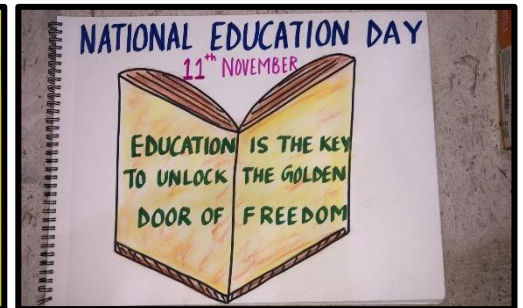 NATIONAL EDUCATION DAY
11th NOVEMBER
EDUCATION IS THE KEY
TO UNLOCK THE GOLDEN
DOOR OF FREEDOM